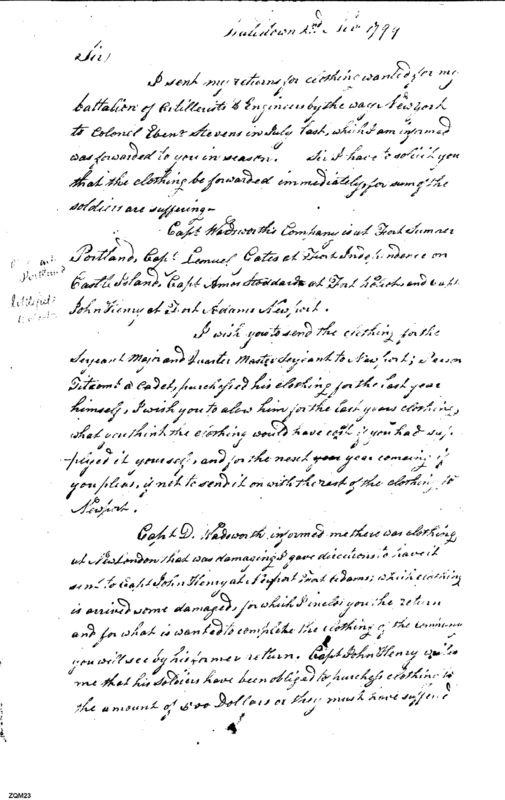 2nd Nov 1799
Sir
I sent my returns for clothing wanted for my
battalion of Artillerists & Engineers by the way Newyork
to Colonel Ebenr Stevens in July last, which I am informed
was forwarded to you in season. Sir I have to solicit you
that the clothing be forwarded immediately, for sum of the
soldiers are suffering -
Capt. Wadsworth's Company is at Fort Sumner
Portland, Capt. Lemuel Gates at Fort Independence on
Castle Island, Capt Amos Stoddard at Fort and Capt
John Henry at Fort Adams Newport.
Portland
I wish you to send the clothing for the
Sergeant Major and Quarter Master Sergeant to Newport; Pierson
Titcomb a Cadet, purchessed his clothing for the last year
himself, I wish you to alow him for the last years clothing,
what you think the clothing would have cost if you had sup
plyed it yourself, and for the next year comeing if
you pleas, if not to send it on with the rest of the clothing to
Newport.
Capt D. Wadsworth, informed me there was clothing
at New London that was damaging I gave directions to have it
sent to Capt John Henry at Newport Fort Adams; which clothing
is arrived some damaged, for which I inclos you the return
and for what is wanted to complete the clothing of the company
you will see by his former return. Capt John Henry
me that his soldiers have been obliged to purchess clothing to
the amount of 500 Dollars or they must have suffered
ZQM23